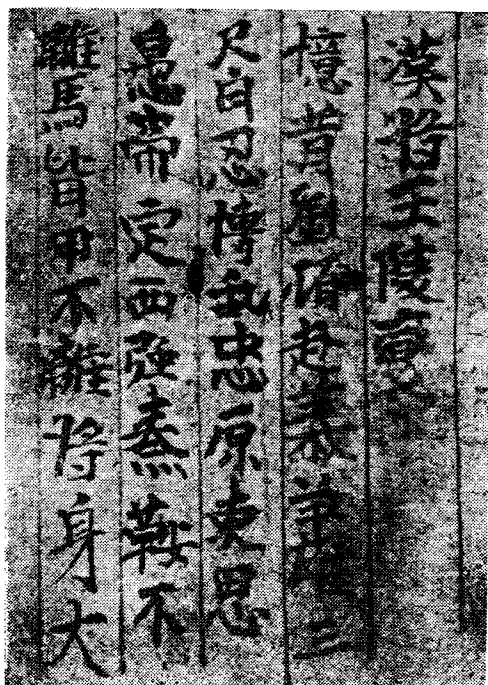 漢將王陵變
憶昔劉項起義爭雄三
尺白忍博亂忠原東思
帝定西強秦鞍不
離馬背甲不離將身大